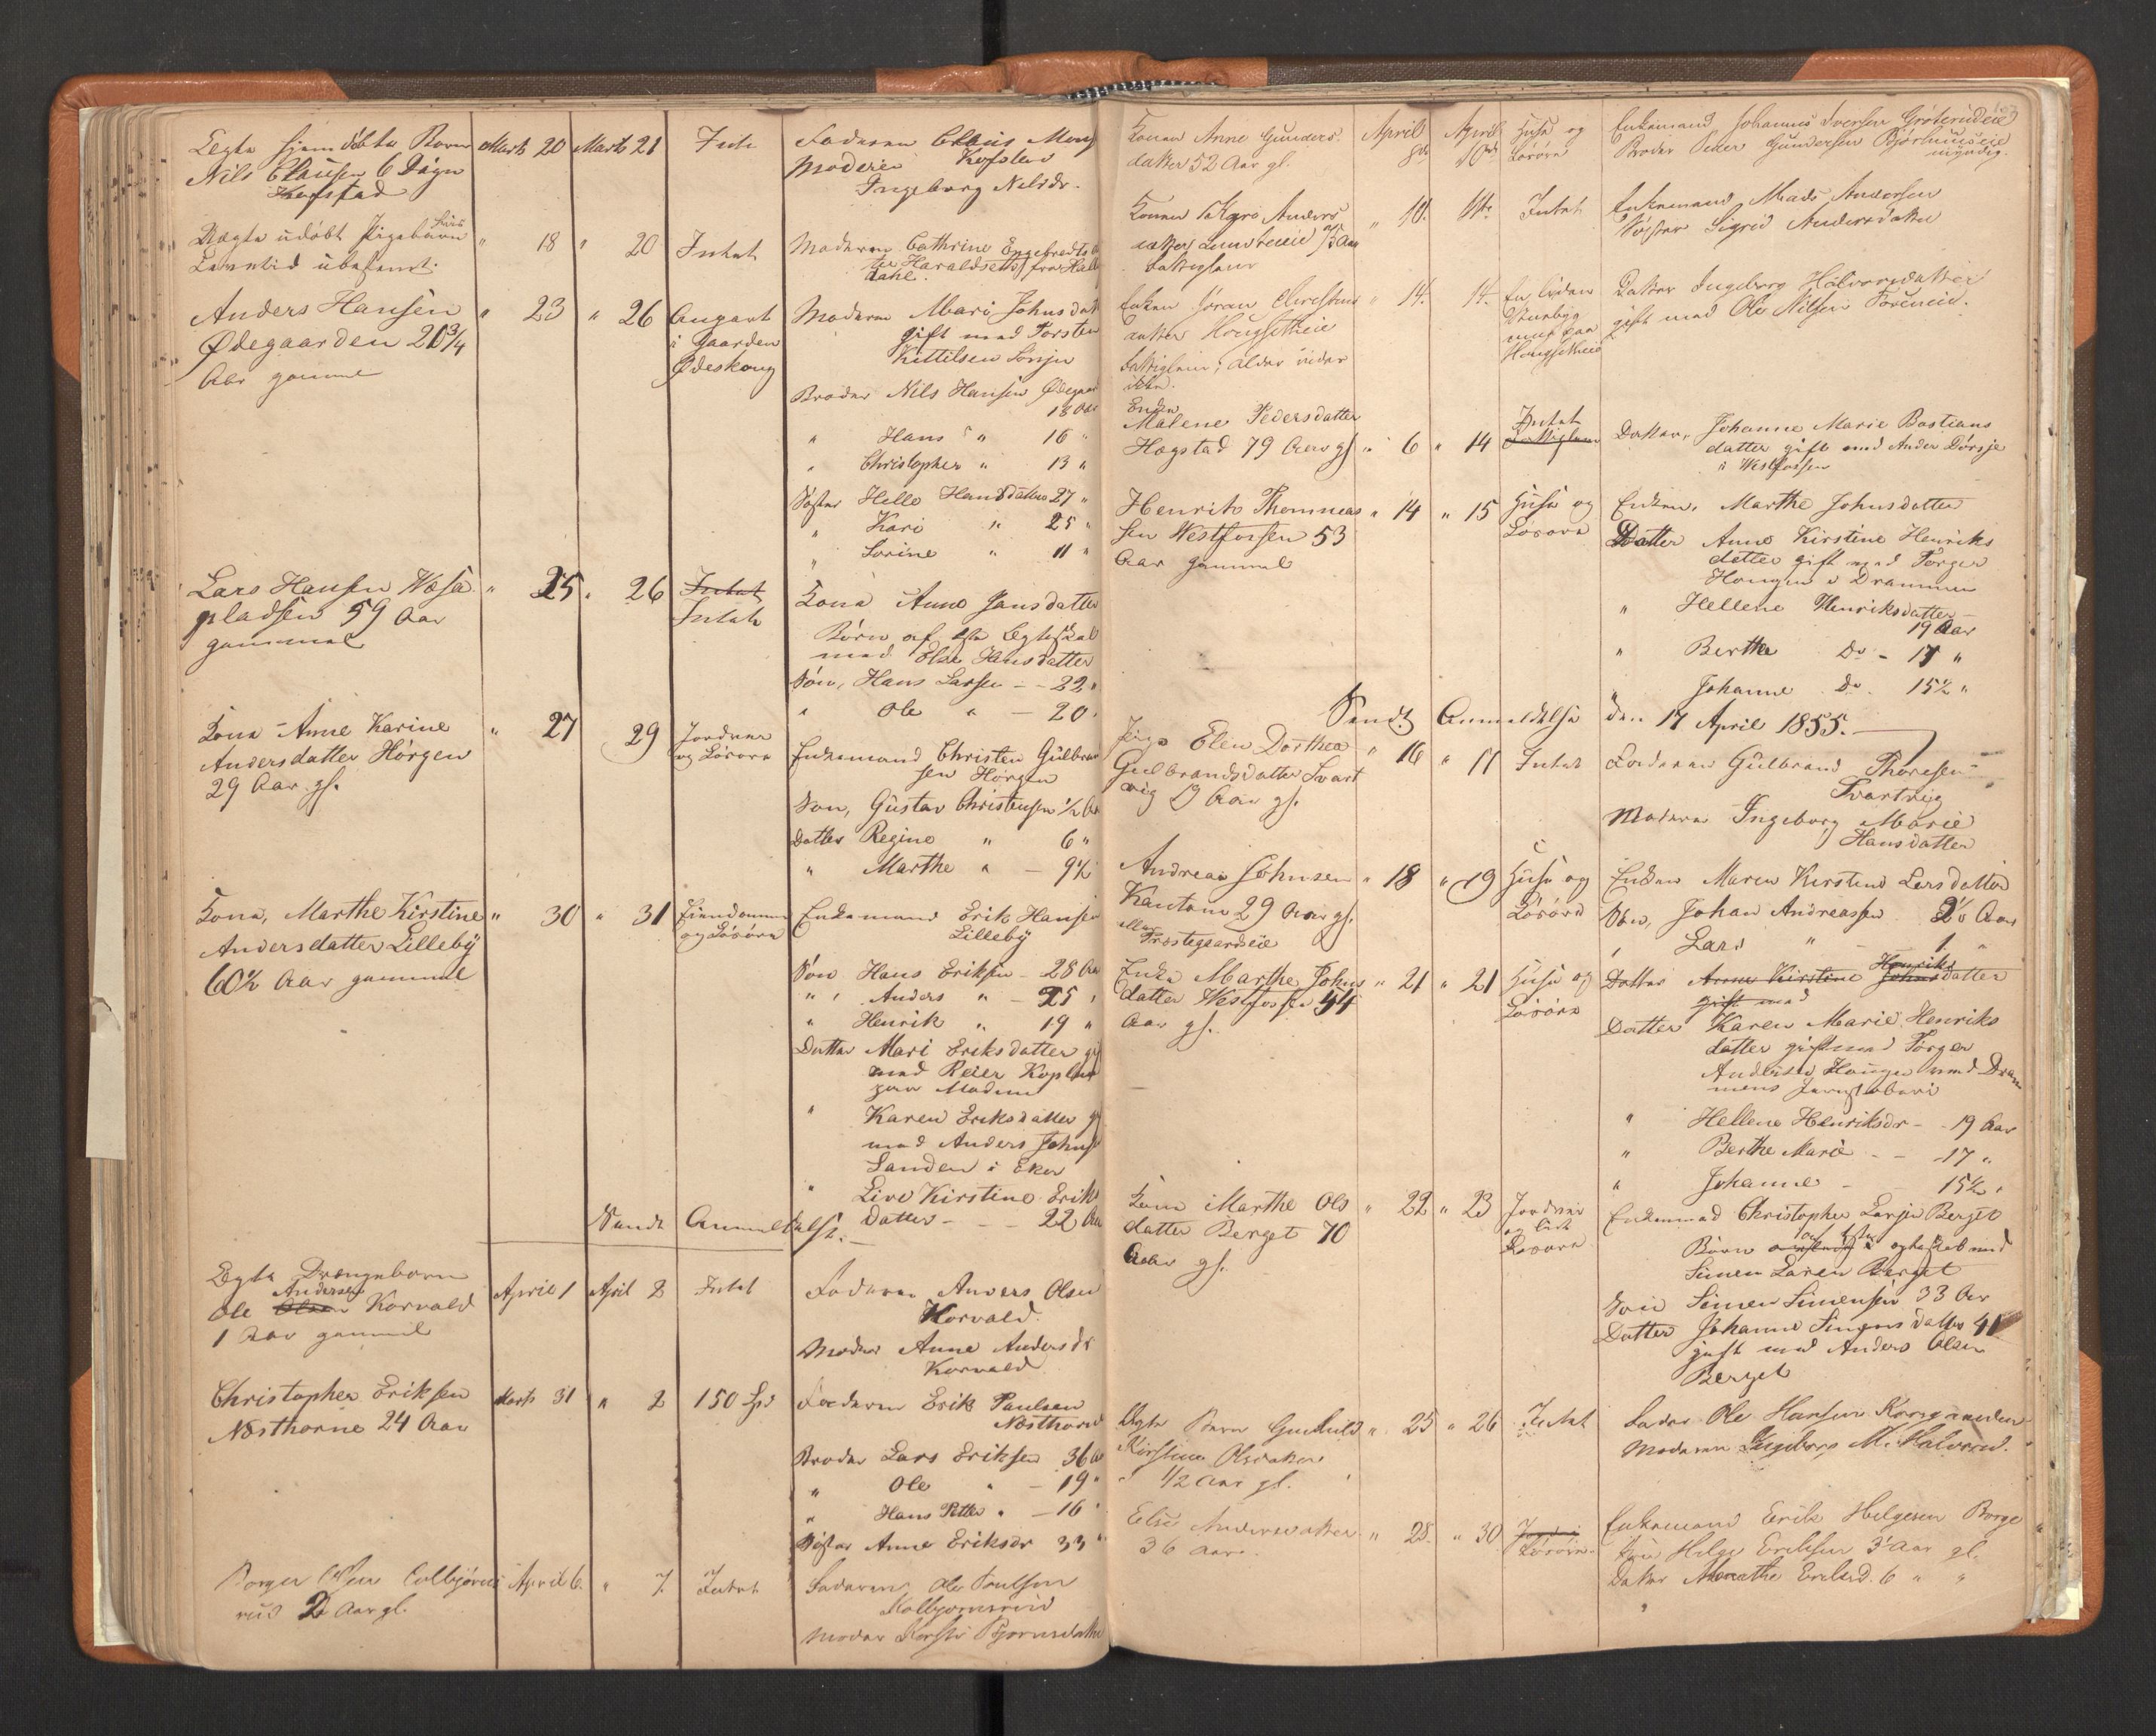 Ægte hjemdøbte Barn
Nils Clausen 6 Dage
Korfstad
Marts 20
Marts 21
Intet
Faderen Claus
Moderen
Ingeborg Nilsdr.
Uægte udøbt Pigebarn
Levetid ubestemt.
" 18
" 20
Intet
Moderen Cathrine Engebretsd
Haraldset fra
dahl.
Anders Hansen
Ødegaarden 20 3/4
Aar gammel
" 23
" 26
Anpart
i Gaarden
Ødeskoug
Moderen Mari Johnsdat
gift med Torsten
Kittilsen
Broder Nils Hansen Ødegaar
18 Aar
" Hans " 16 "
" Christopher " 13 "
Søster Helle Hansdatter 27 "
" Kari " 25 "
" Sorine " 11 "
Lars Hansen
pladsen 59 Aar
gammel
" 25
" 26
Intet
Intet
Kone Anne Jansdatter
Børn af 1ste Ægteskab
med Else Hansdatter
Søn, Hans Larsen - - 22 "
" Ole " - 20 "
Kone - Anne Karine
Andersdatter Hørgen
29 Aar gl.
" 27
29
Jordvei
og Løsøre
Enkemand Christen Gulbran
sen Hørgen
Søn, Gustav Christensen 1/2 Aar
Datter Regine " 6 "
" Marthe " - 9 1/2
Kone, Marthe Kirstine
Andersdatter Lilleby
60 1/2 Aar gammel
" 30
" 31
Eiendomme
og Løsøre
Enkemand Erik Hansen
Lilleby
Søn Hans Eriksen - 28 Aar
" Anders " - 25 "
" Henrik " 19 "
Datter Mari Eriksdatter gi
med Reier
paa Modum
" Karen Eriksdatter g
med Anders Johns
Sanden i Eker
" Live Kirstine Eriks
datter - - - 22 Aar
Sendt Anmeldelse.
Ægte Drengebarn
Andersen
Ole Olsen Korvald
1 Aar gammel
April 1
April 2
Intet
Faderen Anders Olsen
Korvald.
Moder Anne Andersdr
Korvald
Christopher Eriksen
Næsthorne 24 Aar
Marts 31
" 2
150 Spd
Faderen Erik Paulsen
Næsthorne
Broder Lars Eriksen 36 Aar
" Ole " - 19 "
" Hans Petter " - 16 "
Søster Anne Eriksdr 33 "
Borger Olsen Colbjørns
rud 2 Aar gl.
April 6.
" 7.
Intet
Faderen Ole Poulsen
Kolbjørnsrud
Moder Kirsti Bjørnsdatter
Konen Anne Gunders
datter 52 Aar gl.
April
8de
April
10de
Huse og
Løsøre
Enkemand Johannes Iversen Grøterudeie
Broder Peder Gundersen Bjørhuuseie
myndig.
Konen Kari Anders
datter 75 Aar
Fattiglem
" 10.
11te
Intet
Enkemand Mads Andersen
Søster Sigrid Andersdatter
Enken Jøran Christens
datter Hougsetheie
Fattiglem, Alder vides
ikke.
" 14.
14.
En liden
Huusbyg
ning paa
Hougsetheie
Datter Ingeborg Halvorsdatter
gift med Ole Nilsen
Enke
Malene Pedersdatter
Hagstad 79 Aar gl.
" 6
" 14
Intet
Fattiglem
Datter, Johanne Marie Bastians
datter gift med Anders
i Westfossen
Henrik Thommas
sen Westfossen 53
Aar gammel
" 14
" 15
Huse og
Løsøre
Enken, Marthe Johnsdatter
Datter Anne Kirstine Henriks
datter gift med Torger
Hougen i Drammen
" Hellene Henriksdatter
19 Aar
" Berthe Do - 17 "
" Johanne Do. 15 1/2 "
Sendt Anmeldelse den 17 April 1855.
Pige Elen Dorthea
Gulbrandsdatter Svart
vig 19 Aar gl.
" 16
" 17
Intet
Faderen Gulbrand Thoresen
Svartvig
Moderen Ingeborg Marie
Hansdatter
Andreas Johnsen
Kantom 29 Aar gl.
eller
Præstegaardseie
" 18
" 19
Huse og
Løsøre
Enken Maren Kirstine Larsdatter
Søn, Johan Andreassen 2 1/2 Aar
" Lars " 1 "
Enke Marthe Johns
datter Westfossen 54
Aar gl.
" 21
" 21
Huse og
Løsøre
Henriks
Datter Anne Kirstine Johnsdatter
gift med
Datter Karen Marie Henriks
datter gift med Torger
Andersen Hougen ved Dram
mens Jernstøberi
" Hellene Henriksdr - - 19 Aar
" Berthe Marie - - 17 "
" Johanne - - 15 1/2 "
Kone Marthe Ols
datter Berget 70
Aar gl.
" 22
" 23
Jordvei
og lidt
Løsøre
Enkemand Christopher Larsen Berget
Børn af 1ste Egteskab med
Simen Larsen Berget
Søn Simen Simensen 33 Aar
Datter Johanne Simensdatter 41
gift med Anders Olsen
Berget
Uægte Barn Gunhild
Kirstine Olsdatter
1/2 Aar gl.
" 25
" 26
Intet
Fader Ole Hansen
Moderen Ingeborg M. Halvorsd.
Else Andersdatter
36 Aar.
" 28.
" 30
Jordvei
Løsøre.
Enkemand Erik Helgesen Borge
Søn Helge Eriksen 3 Aar gl.
Datter Marthe Eriksd. 6 " "